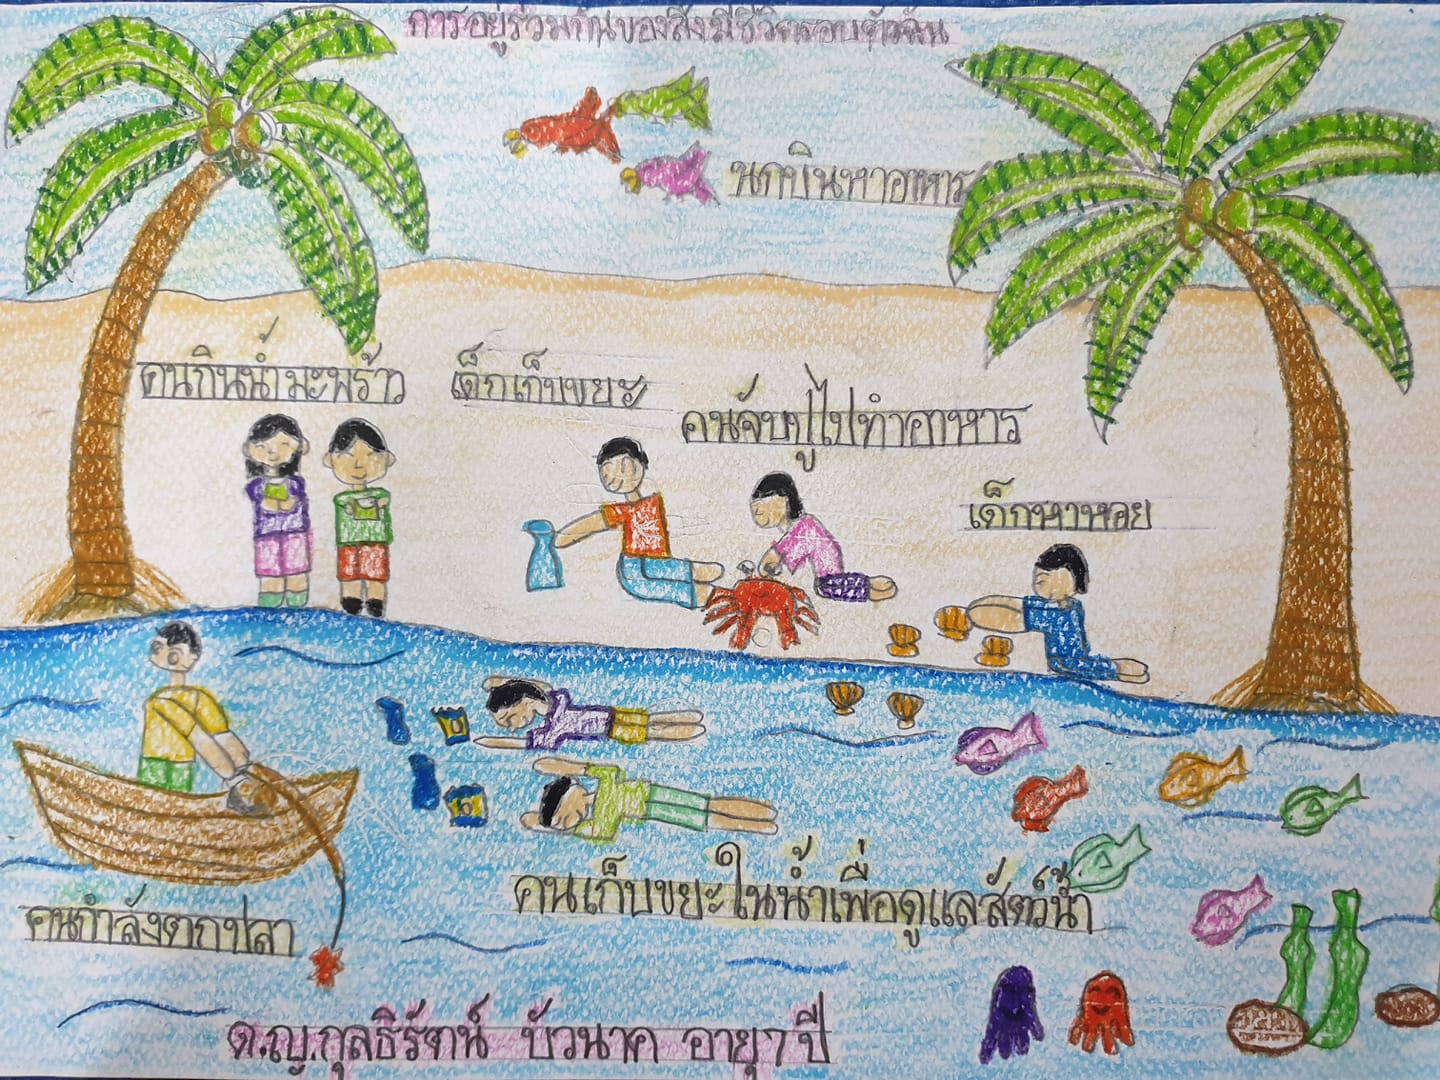 การอยู่ร่วมกันของสิ่งมีชีวิตรอบตัวฉัน
นกบินหาอาหาร
คนกินน้ำมะพร้าว
เด็กเก็บขยะ
คนจับปูไปทำอาหาร
เด็กหาหอย
คนเก็บขยะในน้ำเพื่อดูแลสัตว์น้ำ
คนกำลังตกปลา
ด.ญ.กุลธิรัตน์ บัวนาค อายุ 7 ปี